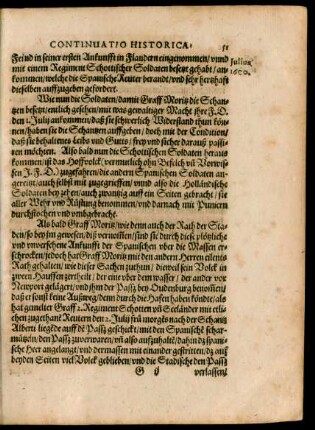 CONTINUATIO HISTORICA.
Feind in seiner ersten Ankunfft in Flandern eingenommen / vnnd
mit einem Regiment Schottischer Soldaten besetzt gehabt / an-
kommen / welche die Spanische Reuter berandt / vnd sehr hertzhafft
dieselben auffzugeben gefordert.
Julius
1600.
Wie nun die Soldaten / damit Graff Moritz die Schan-
tzen besetzt / entlich gesehen / mit was gewaltiger Macht jhre F. D.
den 1. Julij ankommen / daß sie schwerlich Widerstand thun köne-
nen / haben sie die Schantzen auffgeben / doch mit der Condition /
daß sie behaltenes Leibs vnd Gutes / frey vnd sicher darauß passi-
ren möchten. Also bald nun die Schottischen Soldaten heraus
kommen / ist das Hoffvolck (vermutlich ohn Befelch vñ Vorwis-
sen J. F. D.) zugefahren / die andern Spanischen Soldaten an-
gereitzt / auch selbst mit zugegrieffen / vnnd also die Holländische
Soldaten bey zehen / auch zwantzig auff ein Seiten gebracht / sie
aller Wehr vnd Rüstung benommen / vnd darnach mit Puniern
durchstochen vnd vmbgebracht.
Als bald Graff Moritz / wie denn auch der Rath der Sta-
den / so bey jm gewesen / diß vernom̃en / sind sie durch diese plötzliche
vnd vnversehene Ankunfft der Spanischen vber die Massen er-
schrocken / jedoch hat Graff Moritz mit den andern Herren eilenis
Rath gehalten / wie dieser Sachen zuthun / dienvel sein Volck in
zween Hauffen zertheilt / der eine vber dem wasser / der ander vor
Neuport gelägen / vnd jhm der Paß bey Oudenburg benom̃en /
daß er sonst keine Außweg / denn durch die Hafen haben könte / als
hat gemelter Graff 2. Regiment Schotten vñ Seeländer mit etli-
chen zugethane Reutern den 2. Julij frü morgẽs nach der Schantz
Alberti ließẽ de auff dẽ Paß geschickt / mit den Spanischẽ schar-
mützeln / den Paß zuverwaren / vñ also auffzuhaltẽ / dahin dz spani-
sche Heer angelangt / vnd dermassen mit einander gestritten / dz auff
beyden Seiten viel Volck geblieben / vnd die Stadische den Paß
G
verlassen /